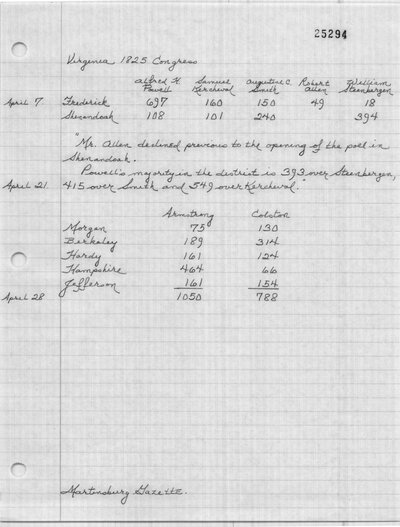 25294
Virginia 1825 Congress
Alfred H. Powell Samuel Kercheval Augustine C. Smith Robert Allen William Steenbergen
April 7. Frederick 697 160 150 49 18
Shenandoah 108 101 240 394
"Mr. Allen declined previous to the opening of the poll in
Shenandoah.
Powell's majority in the district is 393 over Steenbergen,
April 21. 415 over Smith and 549 over Kercheval."
Armstrong Colston
Morgan 75 130
Berkeley 189 314
Hardy 161 124
Hampshire 464 66
Jefferson 161 154
April 28 1050 788
Martinsburg Gazette.